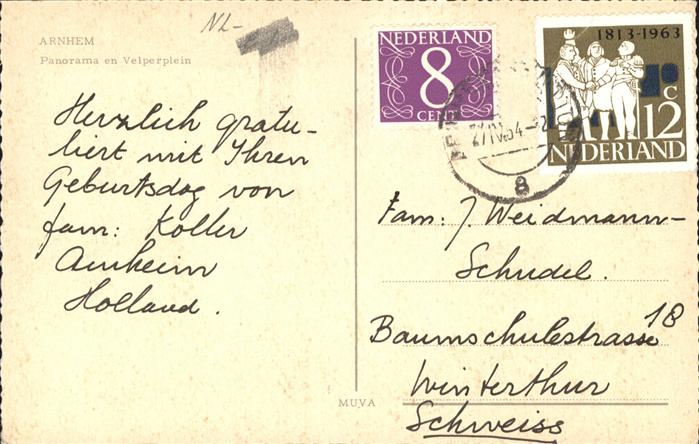 NL-
ARNHEM
Panorama en Velperplein
Herzlich gratu-
liert mit Ihren
Geburtsdag von
fam: Koller
Arnheim
Holland.
NEDERLAND
8
CENT
1813-1963
12 c
NEDERLAND
8
Fam: J. Weidmann-
Schudel.
Baumschulestrasse 18
Winterthur
Schweiss
MUVA